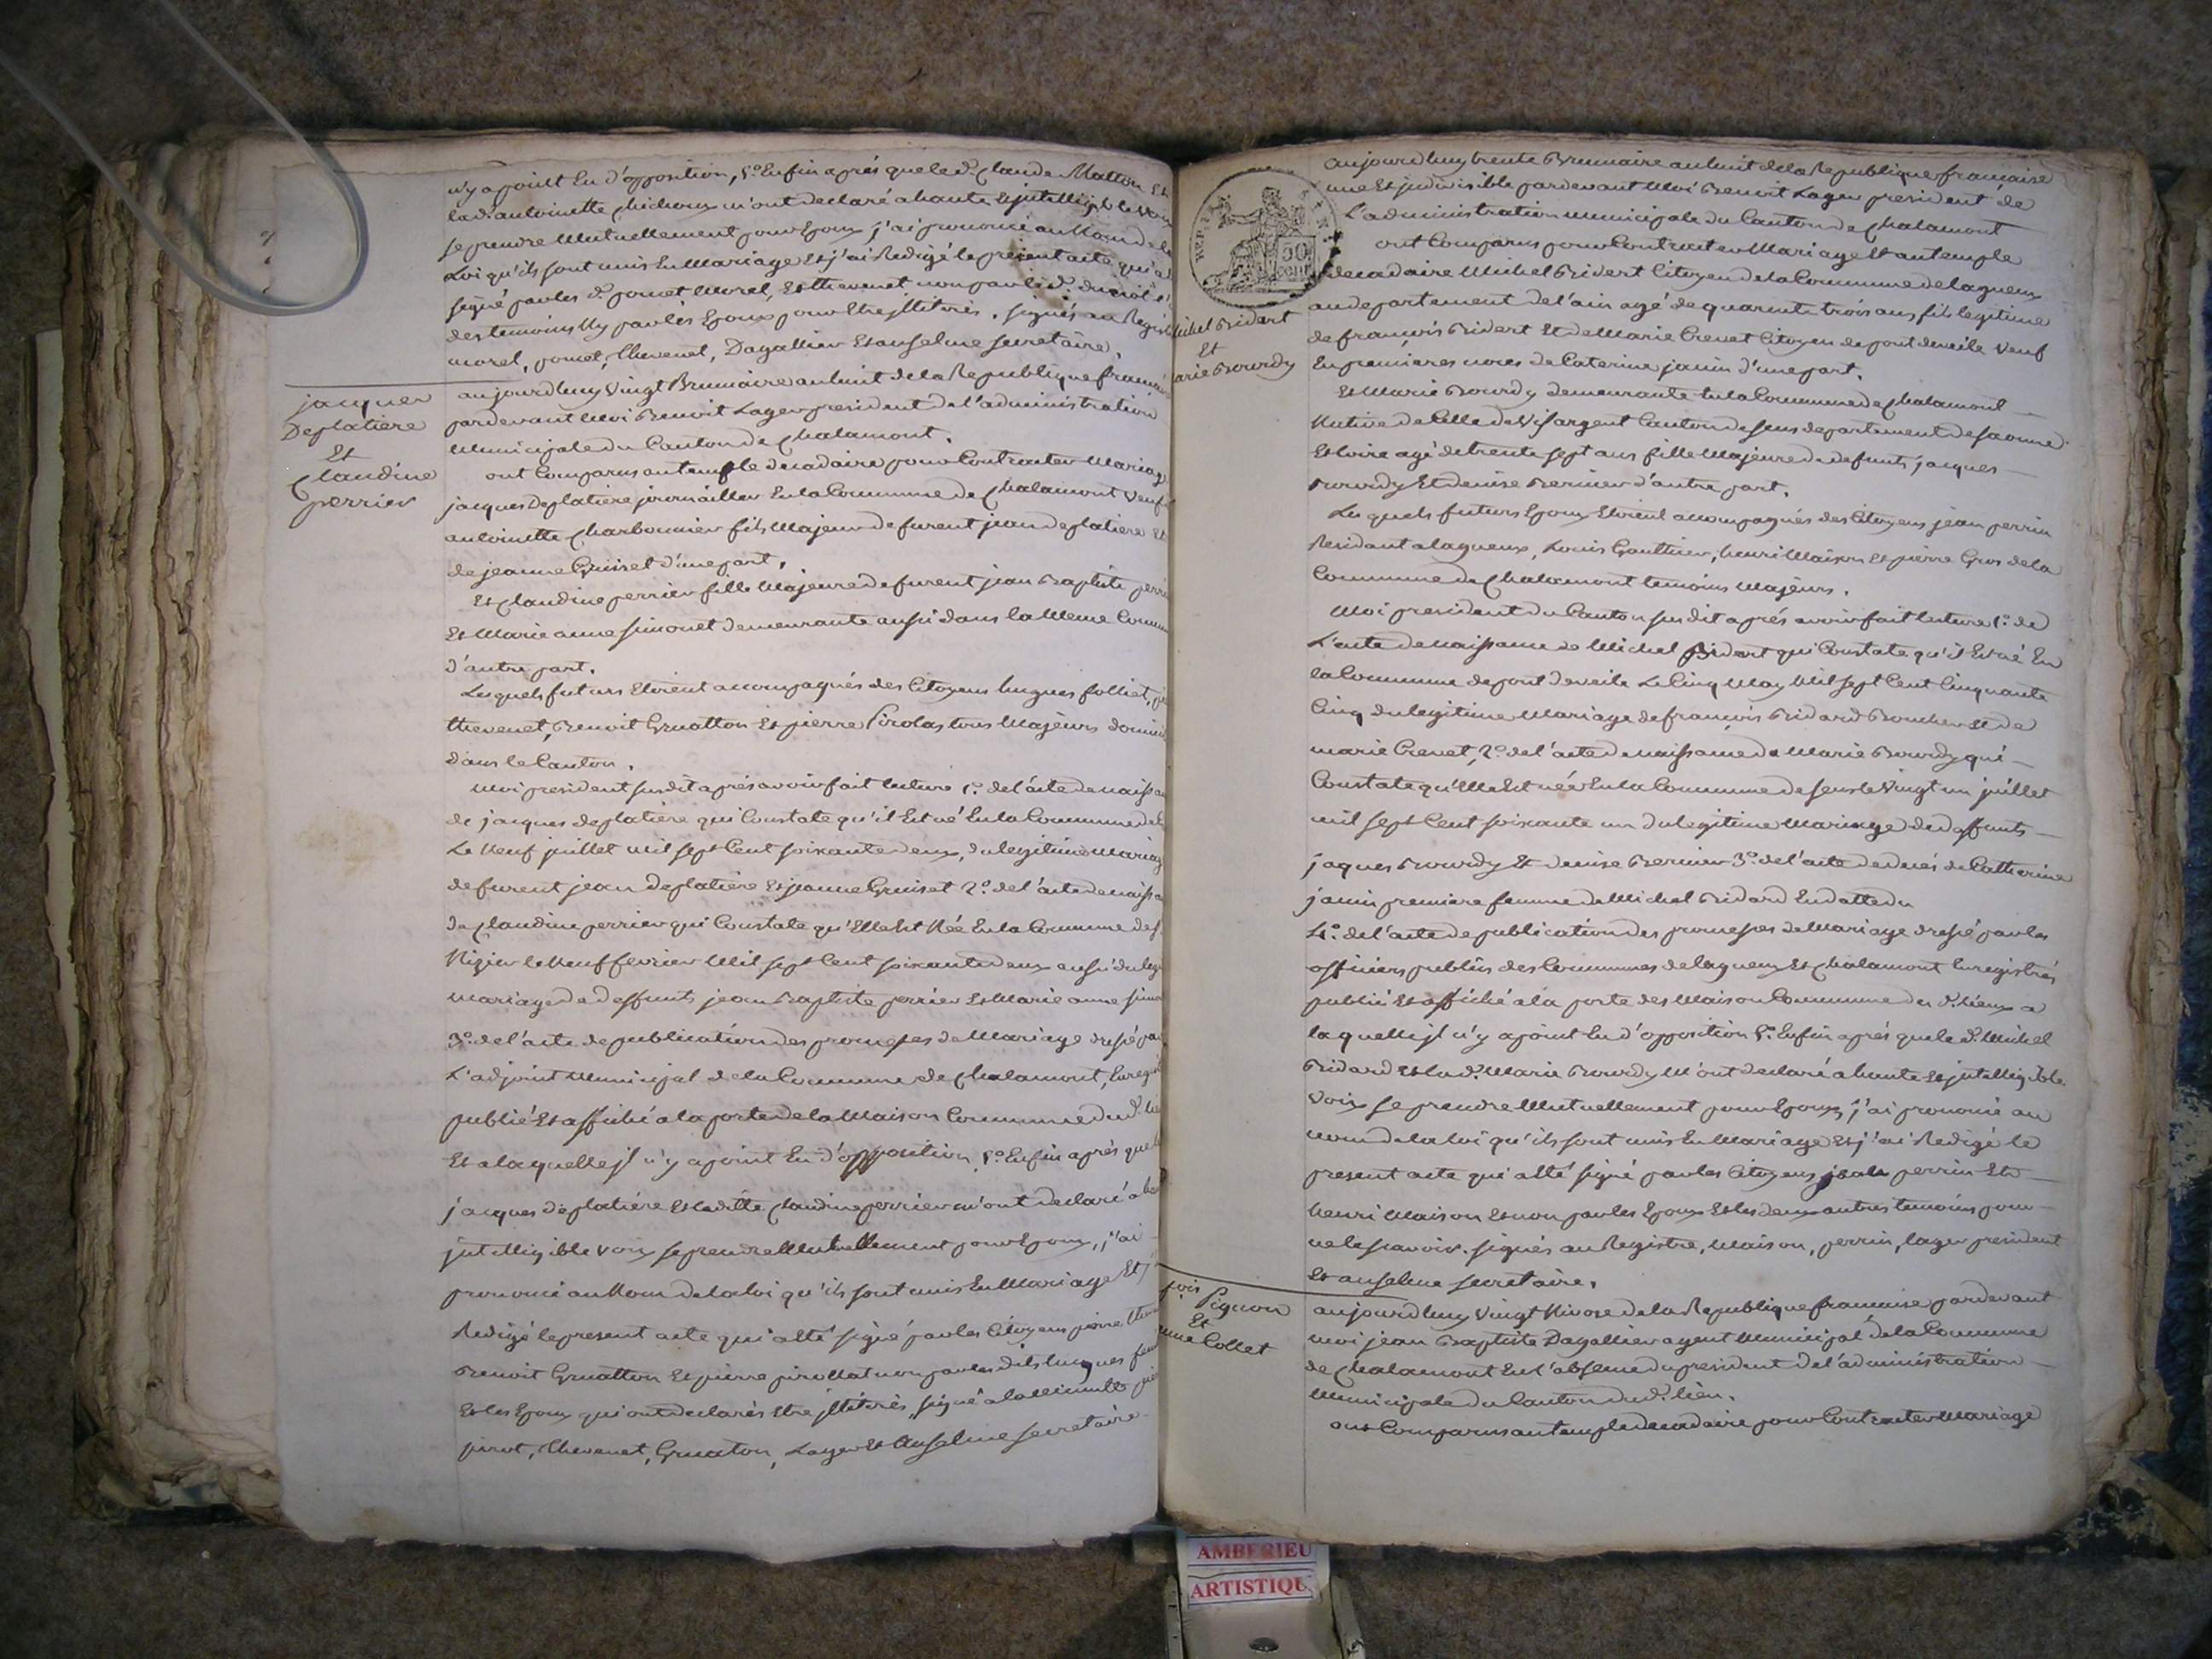 n'y a point Eu d'opposition, 5.° Enfin après que le d. Claude Matton Et
la d. antoinette Chichoux m'ont declaré a haute Et jntelligible Voix
se prendre Mutuellement pour Epoux, j'ai prononcé au Nom de la
Loi qu'ils sont unis En Mariage Et j'ai Redigé le present acte qui a
signé par les d. pomet Morel, Et thevenet non par le d.
des temoins Ny par les Epoux pour Etre jlleterés. signés au Regist
morel, pomet, thevenet, Dagallier Et anselme secretaire.
jacques
Deplatiere
Et
Claudine
perrier
aujourdhuy Vingt Brumaire an huit de la Republique francaise
pardevant Moi Benoit Lager president de l'administration
Municipale du Canton de Chalamont.
ont Comparus au temple decadaire pour Contracter Mariage
jacques Deplatiere journallier En la Commune de Chalamont Veuf
antoinette Charbonnier fils Majeur de furent jean deplatiere Et
de jeanne Gruiset d'une part,
Et Claudine perrier fille Majeure de furent jean Baptiste perri
Et Marie anne simonet demeurante aussi dans la Meme Commun
d'autre part.
Lesquels futurs Etoient accompagnés des Citoyens hugues folliet,
thevenet, Benoit Gruatton Et pierre Pirolas tous Majeurs domici
dans le Canton.
Moi president susdit après avoir fait lecture 1.° de l'acte de naissan
de jacques deplatiere qui Constate qu'il Est né En la Commune de
Le Neuf juillet mil sept Cent soixante deux, du legitime Mariag
de furent jean Deplatière Et jeanne Gruiset 2.° de l'acte de naissa
de Claudine perrier qui Constate qu'Elle Est Née En la Commune de s
Nizier le Neuf fevrier Mil sept Cent soixante deux aussi du legi
Mariage de deffunts jean Baptiste perrier Et Marie anne simo
3.° de l'acte de publication des promesses de Mariage dressé pa
L'adjoint Municipal de la Commune de Chalamont, Enregis
publié Et affiché a la porte de la Maison Commune du d. lie
Et a laquelle jl n'y a point Eu d'opposition 5.° Enfin après que
jacques deplatiére Et laditte Claudine perrier m'ont declaré a ha
jntelligible voix se prendre Mutuellement pour Epoux, j'ai
prononcé au Nom de la loi qu'ils sont unis En Mariage Et j
Redigé le present acte qui a Eté signé par les Citoyens pierre
Benoit Gruatton Et pierre pirollat non par les dits hugues
Et les Epoux qui ont declarés Etre jlleterés, signé a la Minutte
pirot, thevenet, Gruaton, Lager Et Anselme secretaire
REPU
50
CENT
Michel Bidart
Et
Marie Bourdy
aujourdhuy trente Brumaire an huit de la Republique francaise
une Et jndivisible pardevant Moi Benoit Lager president de
L'administration municipale du Canton de Chalamont
ont Comparus pour Contracter Mariage Et au temple
decadaire Michel Bidert Citoyen de la Commune de lagneux
au departement de l'ain agé de quarente trois ans fils legitime
de francois Bidert Et de Marie Crevat Citoyen de pont deveile Veuf
En premieres noces de Caterine janin d'une part.
Et Marie Bourdy demeurante En la Commune de Chalamont
Native de Celle de Visargent Canton de sens departement de saonne
Et loire agé de trente sept ans fille Majeure de defunts jacques
Bourdy Et denise Bernier d'autre part.
Lesquels futurs Epoux Etoient accompagnés des Citoyens jean perrin
Residant a lagneux, Louis Gauthier, henri Maison Et pierre Gros de la
Commune de Chalamont temoins Majeurs.
Moi president du Canton susdit après avoir fait lecture 1.° de
L'acte de naissance de Michel Bidert qui Constate qu'il Est né En
la Commune de pont de veile Le Cinq May Mil sept Cent Cinquante
Cinq du legitime Mariage de francois Bidard Boucher Et de
marie Crevat, 2.° de l'acte de naissance de Marie Bourdy qui
Constate qu'Elle Est née En la Commune de sens le Vingt un juillet
mil sept Cent soixante un du legitime Mariage de deffunts
jaques Bourdy Et denise Bernier 3.° de l'acte de decés de Catherine
janin premiere femme de Michel Bidard En datte du
4.° de l'acte de publication des promesses de Mariage dressé par les
officiers publics des Communes de lagneux Et Chalamont Enregistrés
publié Et affiché a la porte des Maison Commune des d. Lieux a
laquelle jl n'y a point Eu d'opposition 5.° Enfin après que le d. Michel
Bidard Et la d. Marie Bourdy M'ont declaré a haute Et jntelligible
Voix se prendre Mutuellement pour Epoux, j'ai prononcé au
nom de la loi qu'ils sont unis En Mariage Et j'ai Redigé le
present acte qui a Eté signé par les Citoyens jean perrin Et
henri Maison Et non par les Epoux Et les deux autres temoins pour
ne le scavoir. signés au Registre, Maison, perrin, lager president
Et anselme secretaire.
Pignon
Et
Collet
aujourdhuy Vingt Nivose de la Republique francaise pardevant
moi jean Baptiste Dagallier agent Municipal de la Commune
de Chalamont En l'absence du president de l'administration
Municipale du Canton du d. lieu.
ont Comparus au temple decadaire pour Contracter Mariage
AMBERIEU
ARTISTIQU